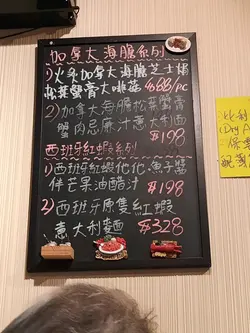 加拿大海膽系列
1)火炙加拿大海膽芝士焗
松葉蟹膏大啡菇 $688/pc
2)加拿大海膽松葉蟹膏
蟹肉忌廉汁意大利麵 $198
西班牙紅蝦系列
1)西班牙紅蝦他他.魚子醬
伴芒果油醋汁 $198
2)西班牙原隻紅蝦
意大利麵 $328
比利
(Dry A